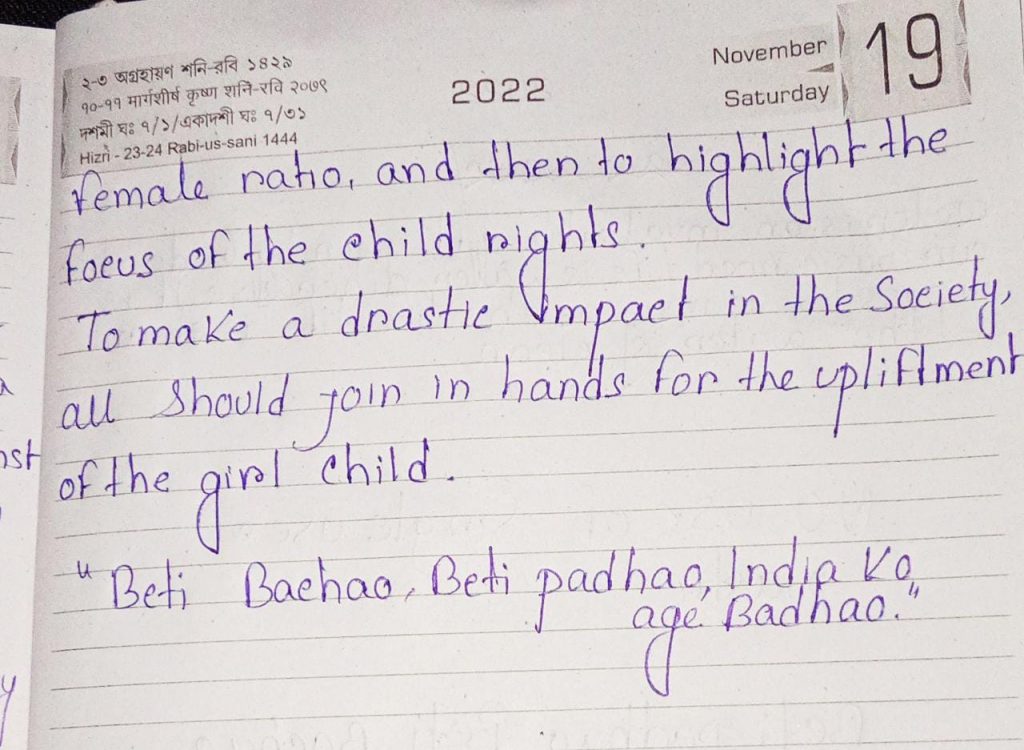 ২-৩ অগ্রহায়ণ শনি-রবি ১৪২৯
१०-११ मार्गशीर्ष कृष्ण शनि-रवि २०७९
দশমী ঘঃ ৭/১/একাদশী ঘঃ ৭/৩১
Hizri - 23-24 Rabi-us-sani 1444
2022
November
Saturday
19
female ratio, and then to highlight the
focus of the child rights.
To make a drastic impact in the Society,
all should join in hands for the upliftment
of the girl child.
"Beti Bachao, Beti padhao, India Ko
age Badhao."
ost
y